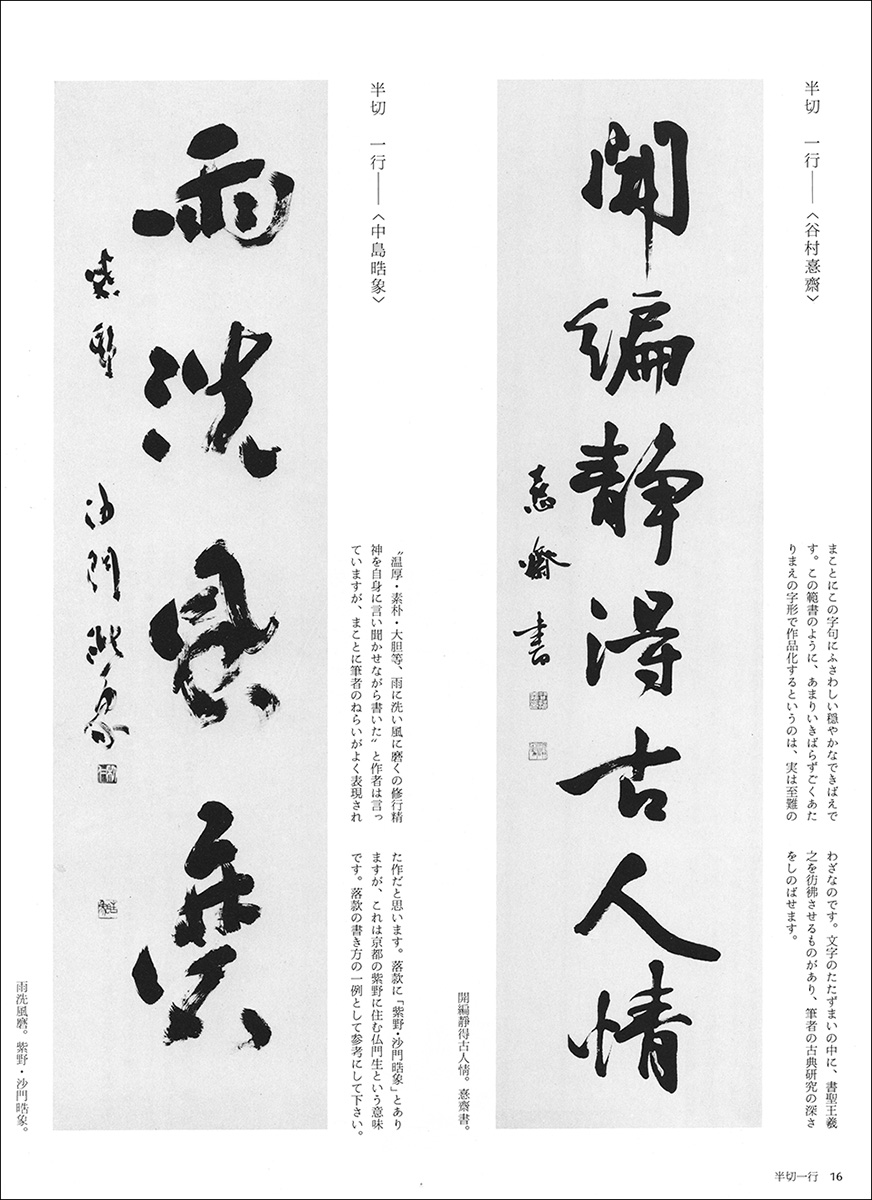 半切　一行――〈谷村憙齋〉
開編静得古人情
憙齋書
まことにこの字句にふさわしい穏やかなできばえで
す。この範書のように、あまりいきばらずごくあた
りまえの字形で作品化するというのは、実は至難の
わざなのです。文字のたたずまいの中に、書聖王羲
之を彷彿させるものがあり、筆者の古典研究の深さ
をしのばせます。
開編靜得古人情。憙齋書。
半切　一行――〈中島晧象〉
雨洗風磨
紫野　沙門晧象
〝温厚・素朴・大胆等、雨に洗い風に磨くの修行精
神を自身に言い聞かせながら書いた〟と作者は言っ
ていますが、まことに筆者のねらいがよく表現され
た作だと思います。落款に「紫野・沙門晧象」とあり
ますが、これは京都の紫野に住む仏門生という意味
です。落款の書き方の一例として参考にして下さい。
雨洗風磨。紫野・沙門晧象。
半切一行　16